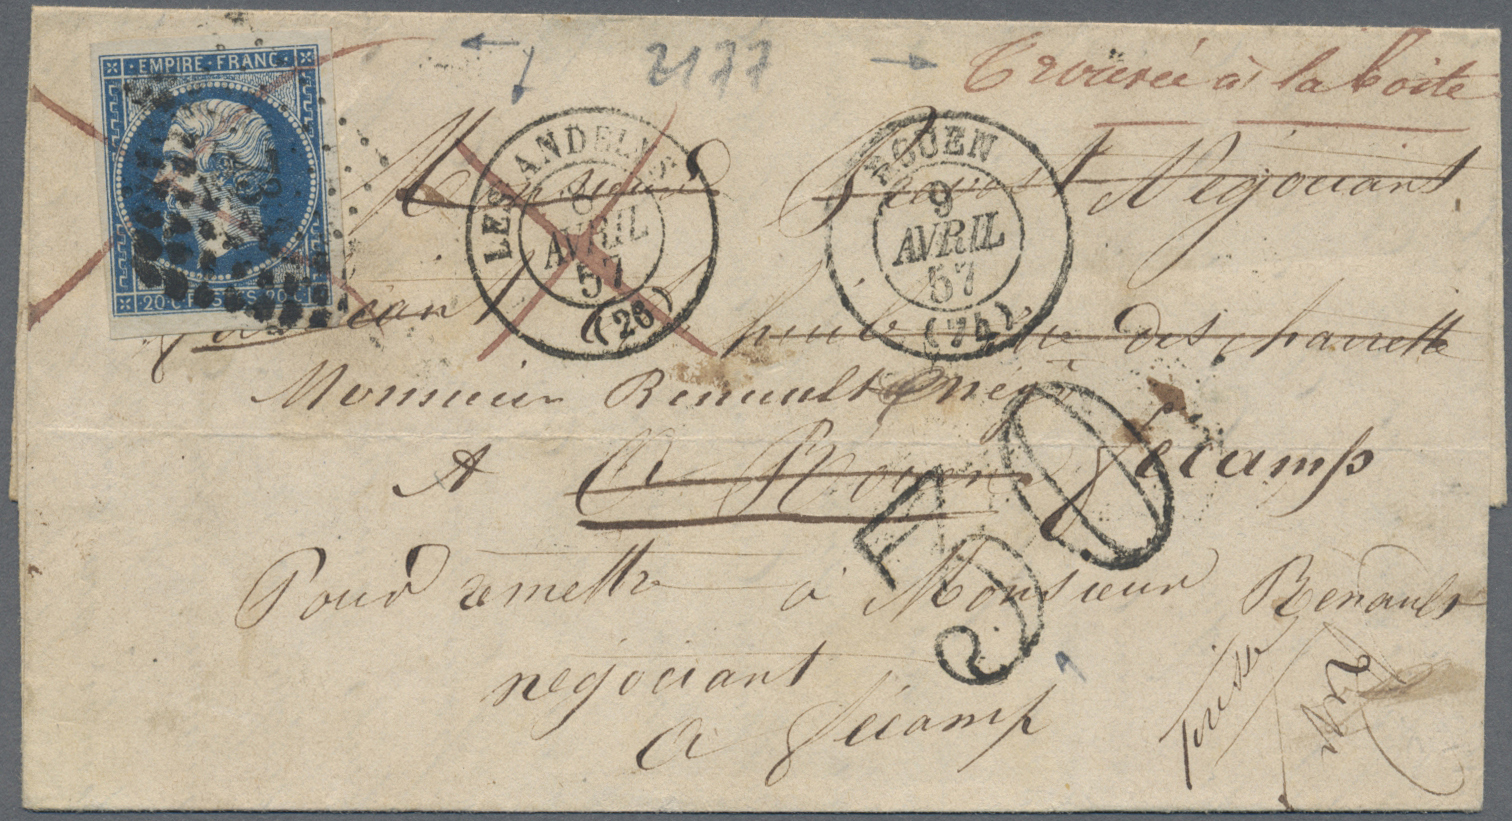 EMPIRE · FRANC ·
20 C · POSTES · 20 C
2177
Trouvée à la boîte
LES ANDELYS
8
AVRIL
57
(26)
ROUEN
9
AVRIL
57
(74)
Monsieur Prevost Négociant
des charrette
Monsieur Renault Nég
A Rouen fecamp
30
Pour remettre à Monsieur Renault
négociant
a fecamp